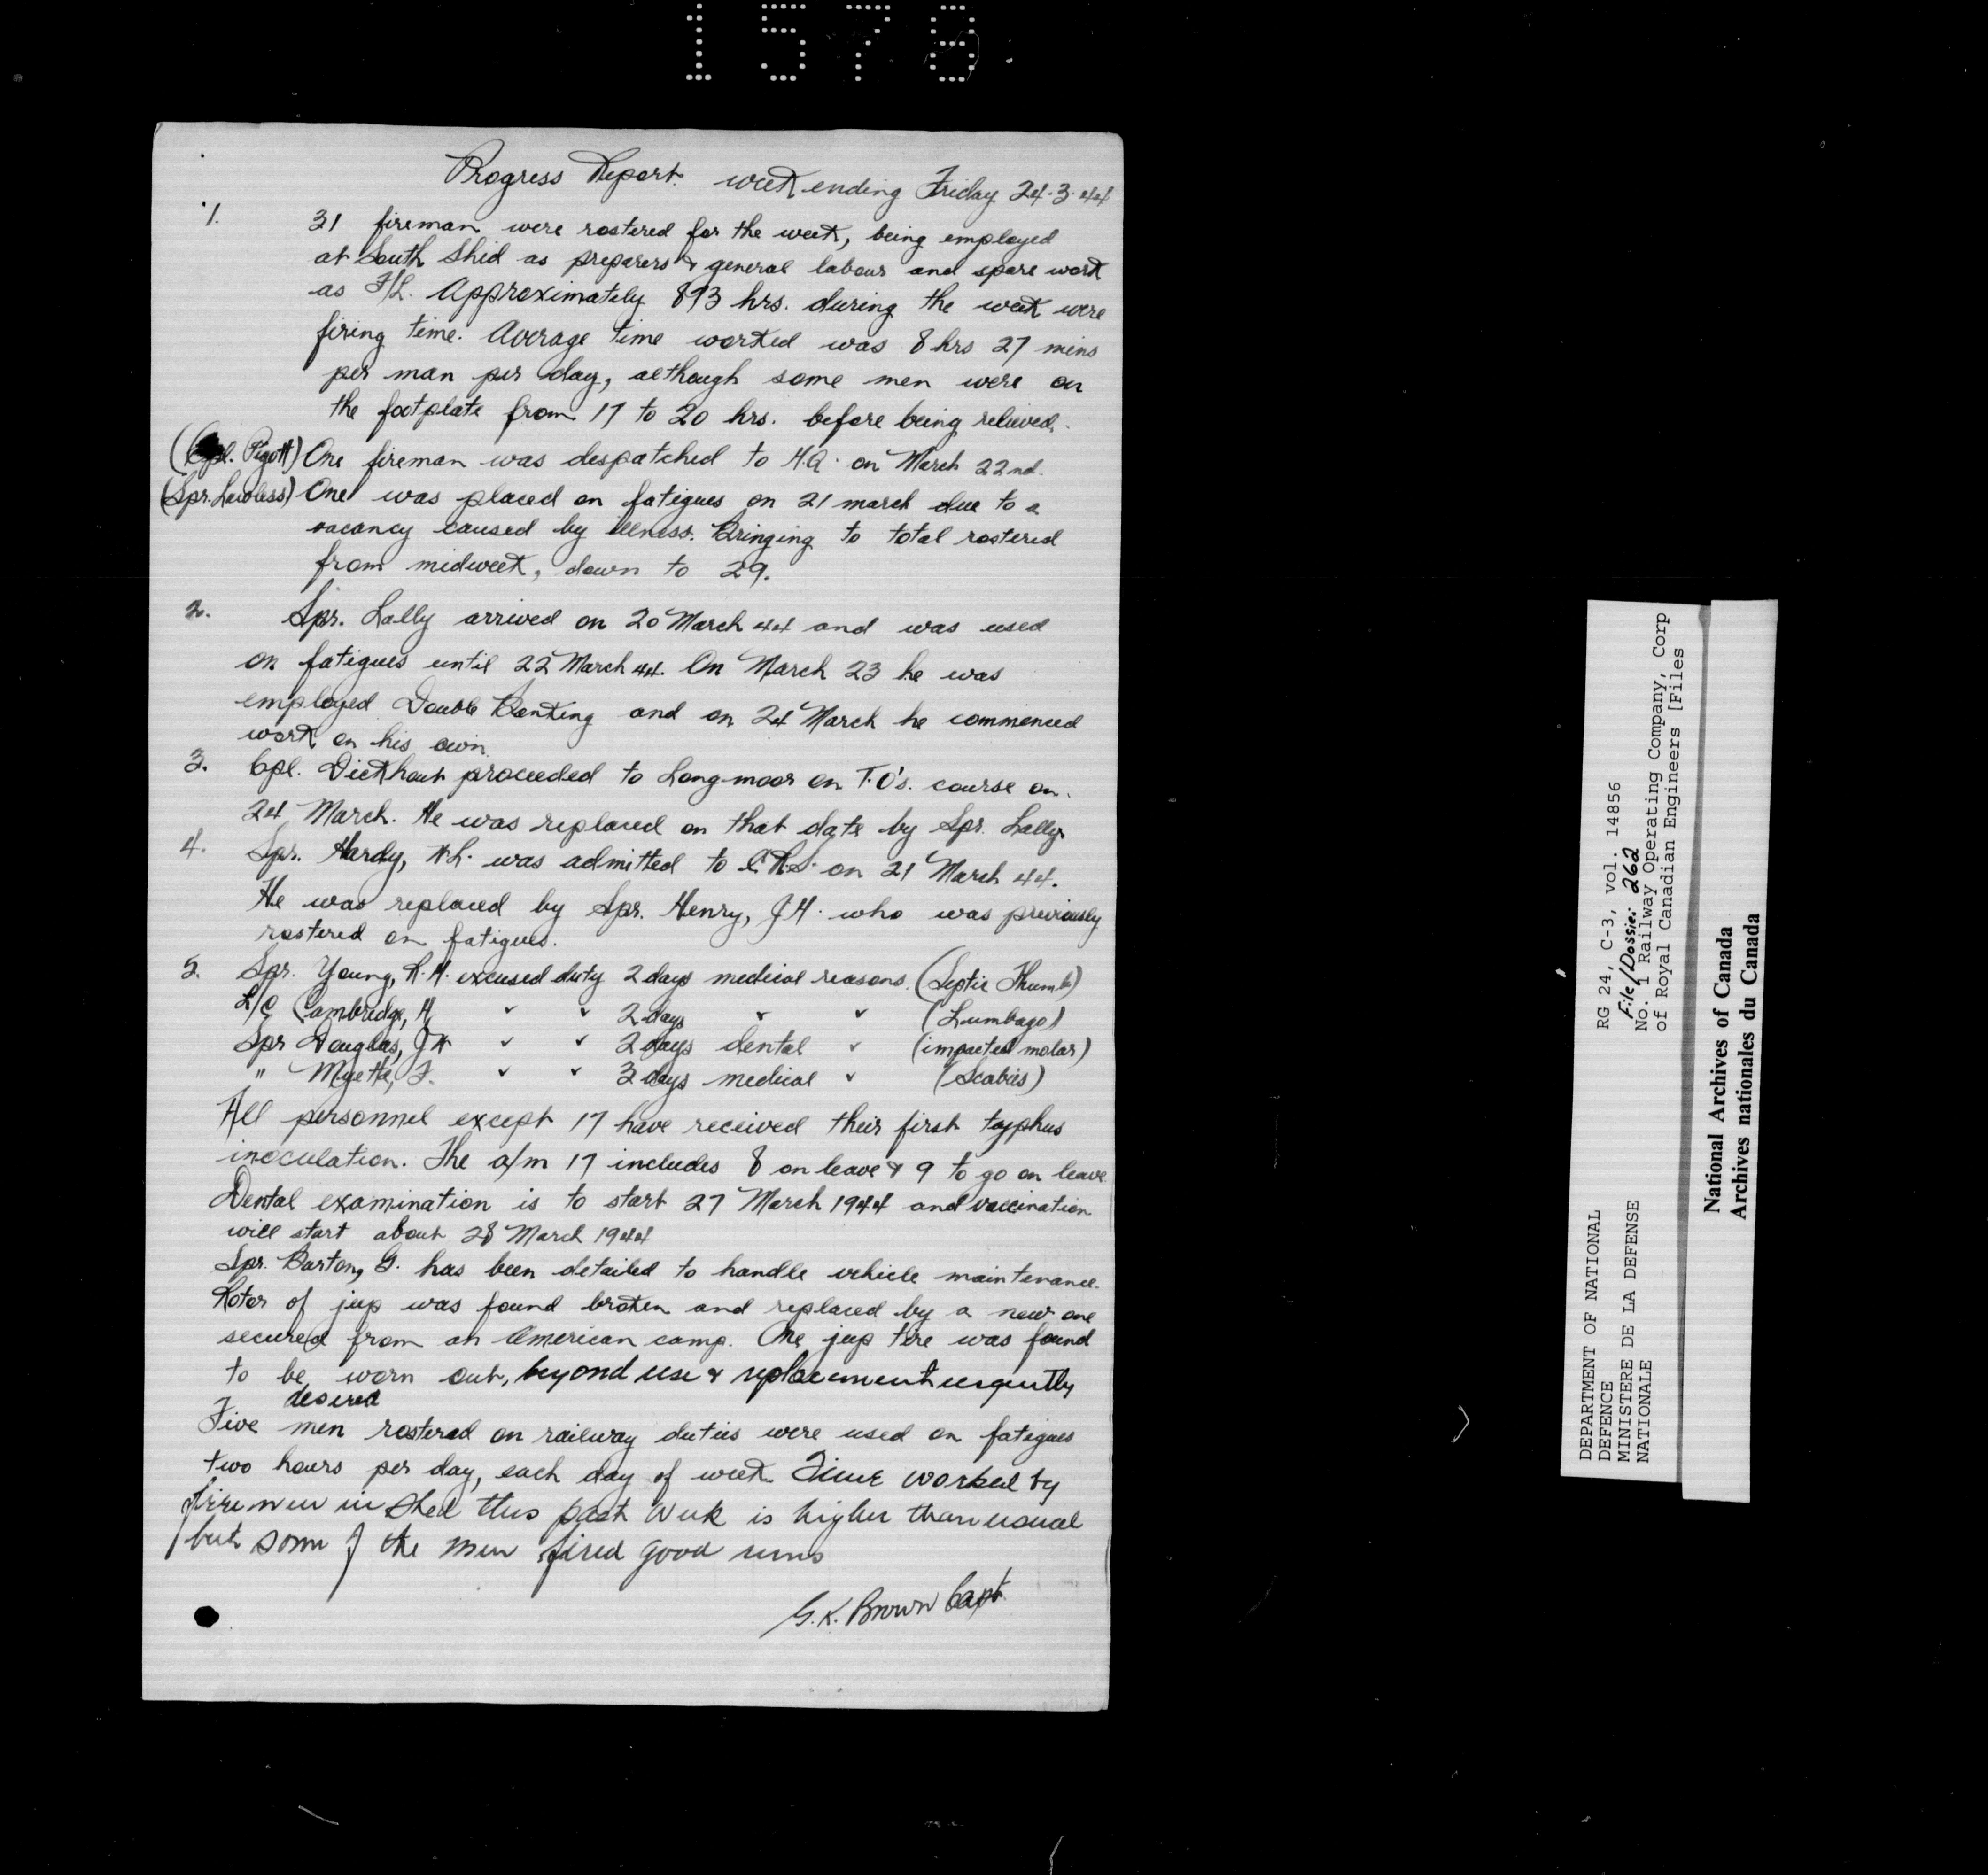 1576
Progress Report. week ending Friday 24.3.44
1. 31 fireman were rostered for the week, being employed
at South Shed as preparers & general labour and spare work
as F/L. Approximately 893 hrs. during the week were
firing time. Average time worked was 8 hrs 27 mins
per man per day, although some men were on
the footplate from 17 to 20 hrs. before being relieved.
(Cpl. Pigott) One fireman was despatched to H.Q. on March 22nd.
(Spr. Lawless) One was placed on fatigues on 21 march due to a
vacancy caused by illness. Bringing to total rostered
from midweek, down to 29.
2. Spr. Lally arrived on 20 March 44 and was used
on fatigues until 22 March 44. On March 23 he was
employed Double Banking and on 24 March he commenced
work on his own.
3. Cpl. Dickhout proceeded to Longmoor on T.O's. course on
24 March. He was replaced on that date by Spr. Lally.
4. Spr. Hardy, was admitted to C.R.S. on 21 March 44.
He was replaced by Spr. Henry, J H. who was previously
rostered on fatigues.
5. Spr. Young, R.H. excused duty 2 days medical reasons. (Septic Thumb)
L/C Cambridge, H, " " 2 days " " (Lumbago)
Spr Douglas, J W " " 2 days dental " (impacted molar)
" Myette, F. " " 3 days medical " (Scabies)
All personnel except 17 have received their first typhus
inoculation. The a/m 17 includes 8 on leave & 9 to go on leave.
Dental examination is to start 27 March 1944 and vaccination
will start about 28 March 1944
Spr. Barton, G. has been detailed to handle vehicle maintenance.
Rotor of jeep was found broken and replaced by a new one
secured from an American camp. One jeep tire was found
to be worn out, beyond use & replacement urgently
desired
Five men rostered on railway duties were used on fatigues
two hours per day, each day of week. Time worked by
firemen in shed this past week is higher than usual
but some of the men fired good runs
G.K. Brown Capt.
RG 24, C-3, vol. 14856
File/Dossier 262
No. 1 Railway Operating Company, Corp
of Royal Canadian Engineers [Files
DEPARTMENT OF NATIONAL
DEFENCE
MINISTERE DE LA DEFENSE
NATIONALE
National Archives of Canada
Archives nationales du Canada